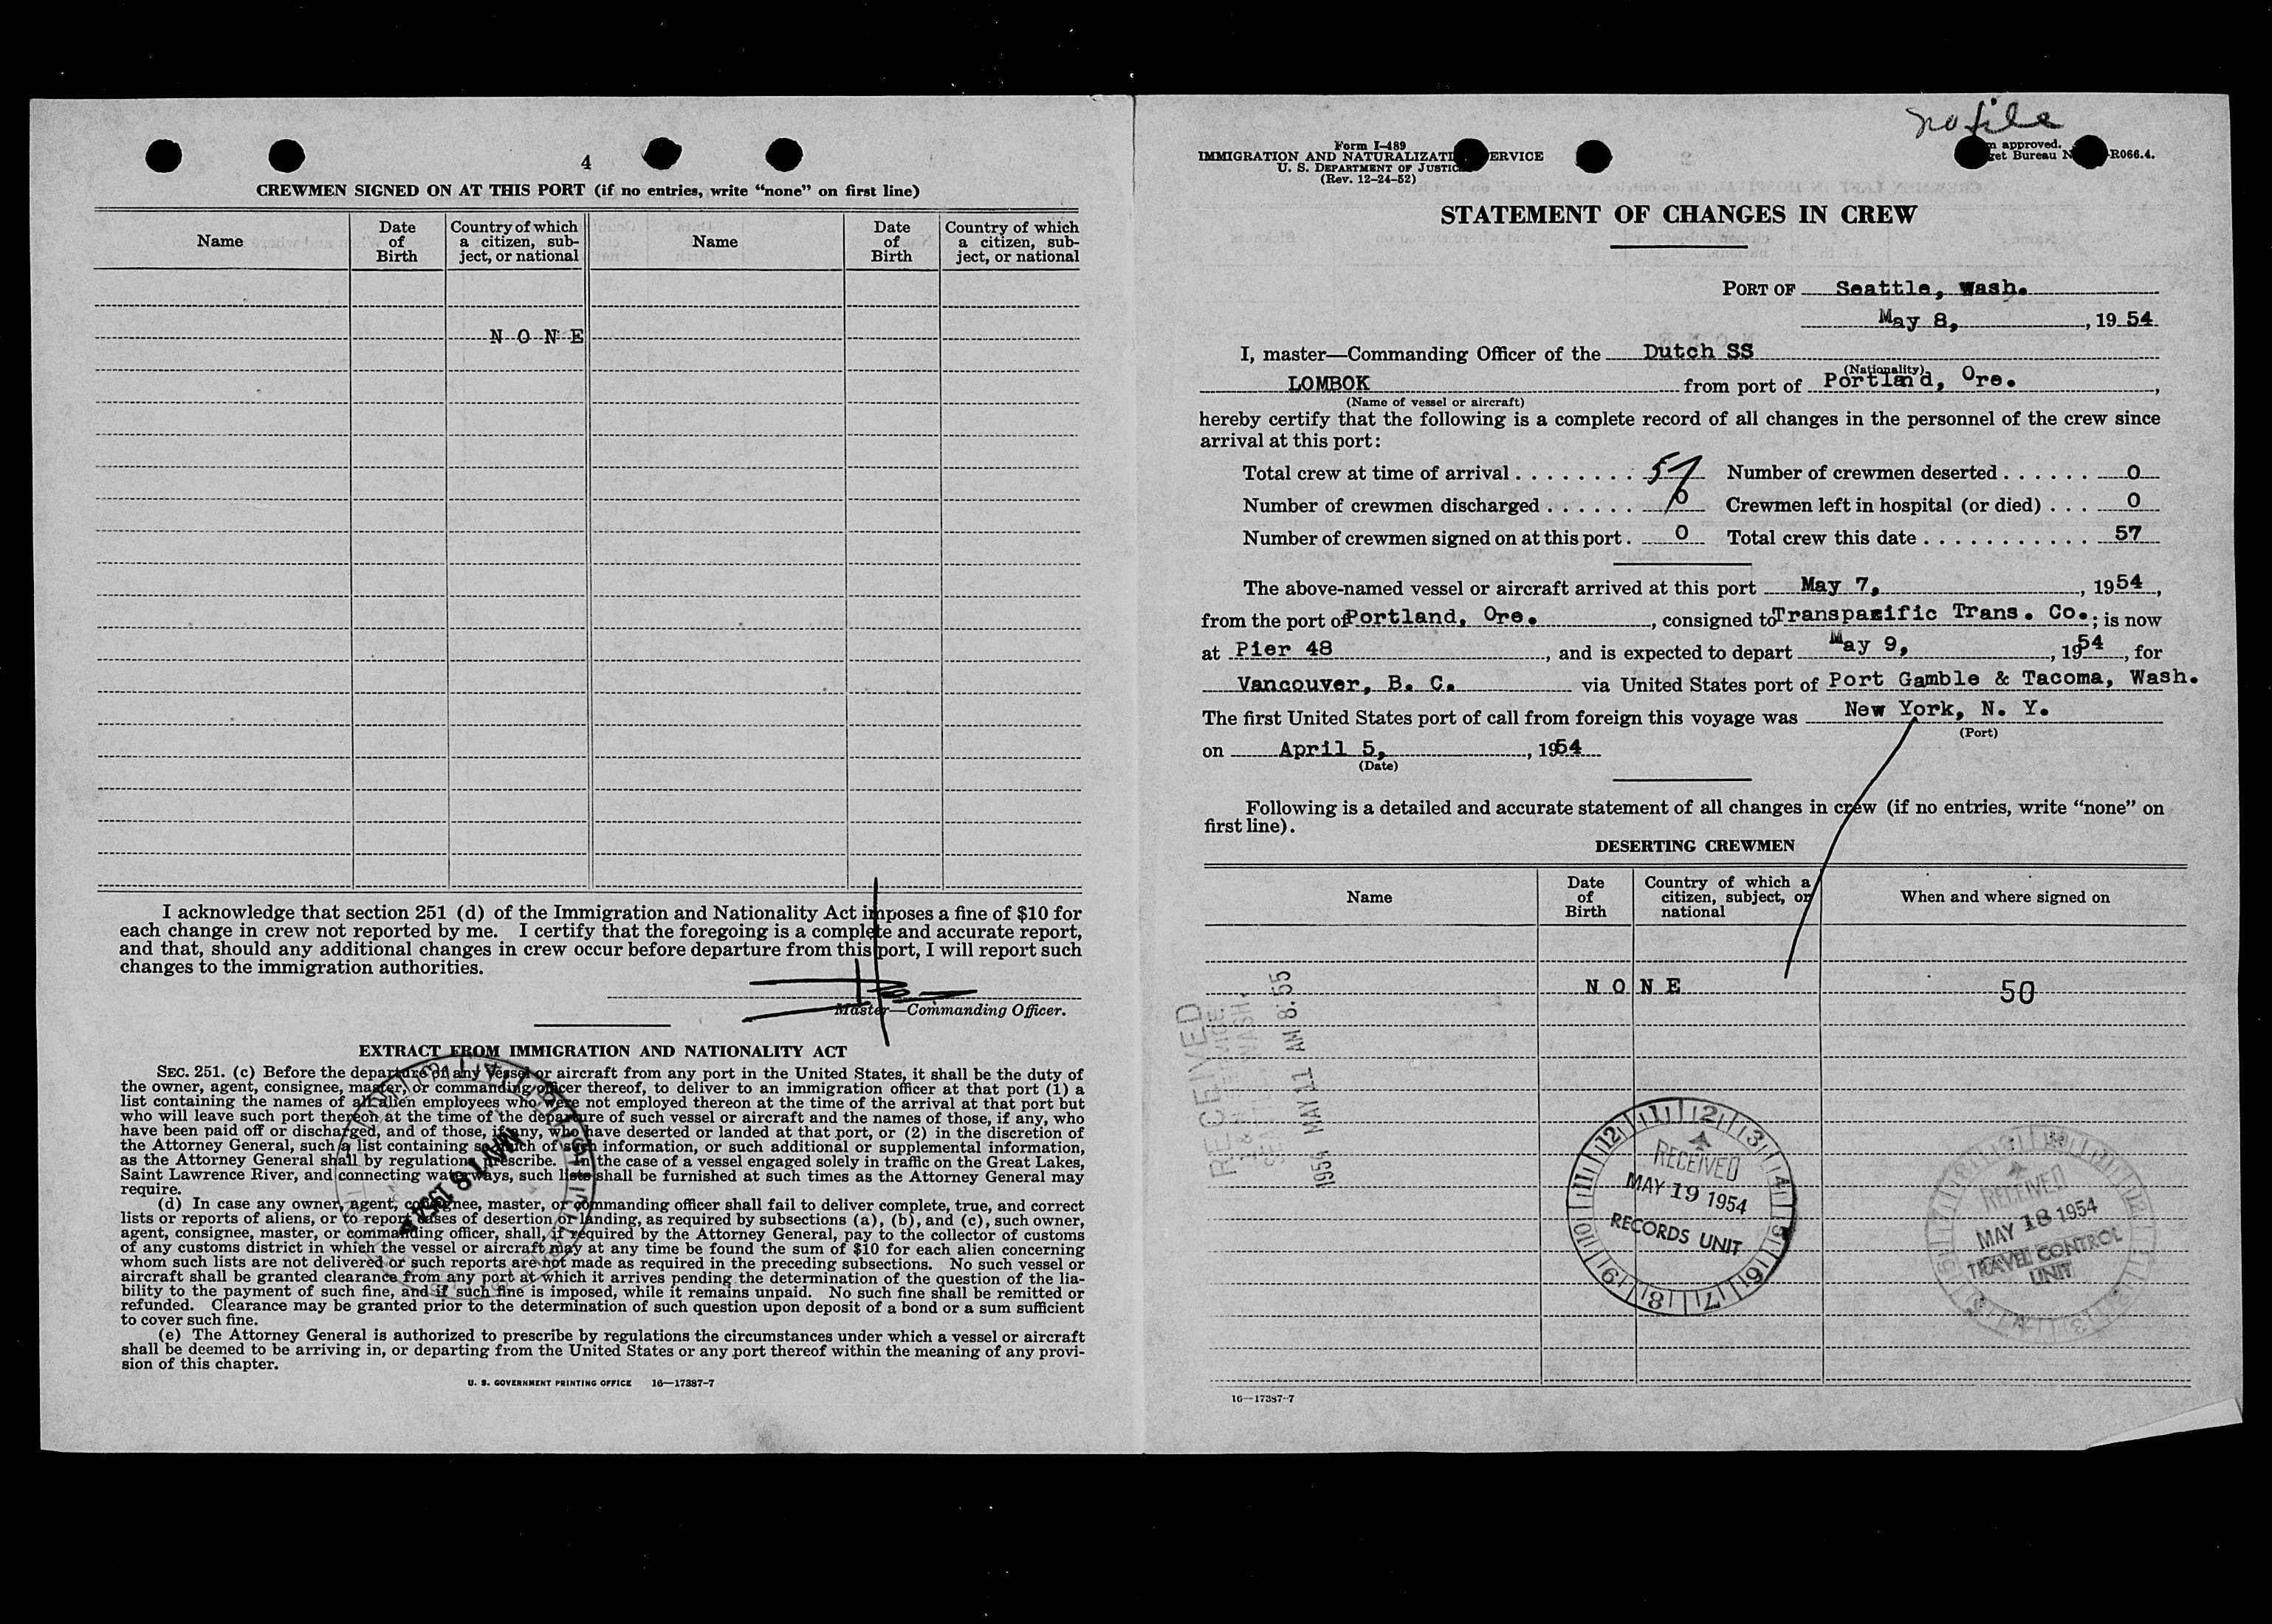 4
CREWMEN SIGNED ON AT THIS PORT (if no entries, write “none” on first line)
Name
Date of Birth
Country of which a citizen, subject, or national
Name
Date of Birth
Country of which a citizen, subject, or national
N O N E
I acknowledge that section 251 (d) of the Immigration and Nationality Act imposes a fine of $10 for
each change in crew not reported by me. I certify that the foregoing is a complete and accurate report,
and that, should any additional changes in crew occur before departure from this port, I will report such
changes to the immigration authorities.
Master—Commanding Officer.
EXTRACT FROM IMMIGRATION AND NATIONALITY ACT
SEC. 251. (c) Before the departure of any vessel or aircraft from any port in the United States, it shall be the duty of
the owner, agent, consignee, master, or commanding officer thereof, to deliver to an immigration officer at that port (1) a
list containing the names of all alien employees who were not employed thereon at the time of the arrival at that port but
who will leave such port thereon at the time of the departure of such vessel or aircraft and the names of those, if any, who
have been paid off or discharged, and of those, if any, who have deserted or landed at that port, or (2) in the discretion of
the Attorney General, such a list containing so much of such information, or such additional or supplemental information,
as the Attorney General shall by regulations prescribe. In the case of a vessel engaged solely in traffic on the Great Lakes,
Saint Lawrence River, and connecting waterways, such lists shall be furnished at such times as the Attorney General may
require.
(d) In case any owner, agent, consignee, master, or commanding officer shall fail to deliver complete, true, and correct
lists or reports of aliens, or to report cases of desertion or landing, as required by subsections (a), (b), and (c), such owner,
agent, consignee, master, or commanding officer, shall, if required by the Attorney General, pay to the collector of customs
of any customs district in which the vessel or aircraft may at any time be found the sum of $10 for each alien concerning
whom such lists are not delivered or such reports are not made as required in the preceding subsections. No such vessel or
aircraft shall be granted clearance from any port at which it arrives pending the determination of the question of the lia-
bility to the payment of such fine, and if such fine is imposed, while it remains unpaid. No such fine shall be remitted or
refunded. Clearance may be granted prior to the determination of such question upon deposit of a bond or a sum sufficient
to cover such fine.
(e) The Attorney General is authorized to prescribe by regulations the circumstances under which a vessel or aircraft
shall be deemed to be arriving in, or departing from the United States or any port thereof within the meaning of any provi-
sion of this chapter.
MAY 18 1954
U. S. GOVERNMENT PRINTING OFFICE 16—17387-7
no file
Form I-489
IMMIGRATION AND NATURALIZATI ERVICE
U. S. DEPARTMENT OF JUSTIC
(Rev. 12-24-52)
approved.
et Bureau N R066.4.
STATEMENT OF CHANGES IN CREW
PORT OF Seattle, Wash.
May 8, , 19 54
I, master—Commanding Officer of the Dutch SS
(Nationality)
LOMBOK from port of Portland, Ore. ,
(Name of vessel or aircraft)
hereby certify that the following is a complete record of all changes in the personnel of the crew since
arrival at this port:
Total crew at time of arrival . . . . . . . . 57 Number of crewmen deserted . . . . . . 0
Number of crewmen discharged . . . . . . 0 Crewmen left in hospital (or died) . . . 0
Number of crewmen signed on at this port . 0 Total crew this date . . . . . . . . . . . 57
The above-named vessel or aircraft arrived at this port May 7, , 1954 ,
from the port of Portland, Ore. , consigned to Transpacific Trans. Co. ; is now
at Pier 48 , and is expected to depart May 9, , 1954 , for
Vancouver, B. C. via United States port of Port Gamble & Tacoma, Wash.
The first United States port of call from foreign this voyage was New York, N. Y.
(Port)
on April 5, , 1954
(Date)
Following is a detailed and accurate statement of all changes in crew (if no entries, write “none” on
first line).
DESERTING CREWMEN
Name
Date of Birth
Country of which a citizen, subject, or national
When and where signed on
N O N E
50
RECEIVED
MAY 11 AM 8:55
1954
RECEIVED
MAY 19 1954
RECORDS UNIT
RECEIVED
MAY 18 1954
TRAVEL CONTROL
UNIT
16—17387-7